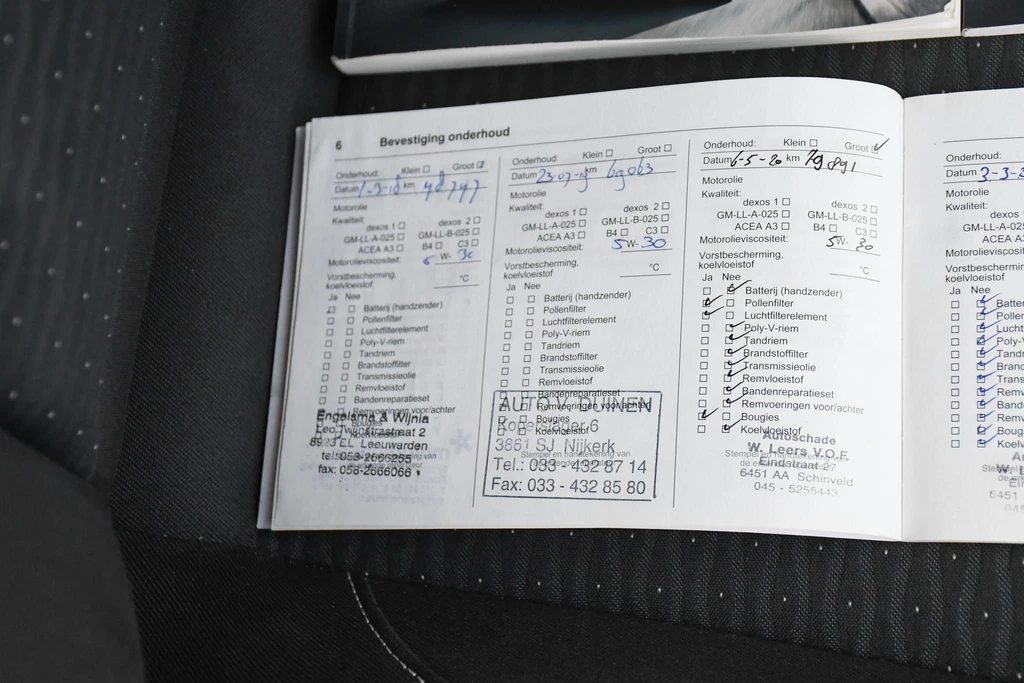 6 Bevestiging onderhoud
Onderhoud: Klein ☐ Groot ☑
Datum 1-3-18 km
Motorolie
Kwaliteit:
dexos 1 ☐ dexos 2 ☐
GM-LL-A-025 ☐ GM-LL-B-025 ☐
ACEA A3 ☐ B4 ☐ C3 ☐
Motorolieviscositeit: 5 W- 30
Vorstbescherming,
koelvloeistof °C
Ja Nee
Batterij (handzender)
Pollenfilter
Luchtfilterelement
Poly-V-riem
Tandriem
Brandstoffilter
Transmissieolie
Remvloeistof
Bandenreparatieset
Remvoeringen voor/achter
Bougies
Engelsma & Wijnia
8923 EL Leeuwarden
tel: 058-2666255
fax: 058-2666068
Onderhoud: Klein ☐ Groot ☐
Datum 23-07-19 km 69063
Motorolie
Kwaliteit:
dexos 1 ☐ dexos 2 ☐
GM-LL-A-025 ☐ GM-LL-B-025 ☐
ACEA A3 ☐ B4 ☐ C3 ☐
Motorolieviscositeit: 5W-30
Vorstbescherming,
koelvloeistof °C
Ja Nee
Batterij (handzender)
Pollenfilter
Luchtfilterelement
Poly-V-riem
Tandriem
Brandstoffilter
Transmissieolie
Remvloeistof
Bandenreparatieset
Remvoeringen voor/achter
Bougies
Koelvloeistof
AUTO V. DUINEN
3861 SJ Nijkerk
Stempel en handtekening van
Tel.: 033 - 432 87 14
Fax: 033 - 432 85 80
Onderhoud: Klein ☐ Groot ☑
Datum 6-5-20 km 79891
Motorolie
Kwaliteit:
dexos 1 ☐ dexos 2 ☐
GM-LL-A-025 ☐ GM-LL-B-025 ☐
ACEA A3 ☐ B4 ☐ C3 ☐
Motorolieviscositeit: 5W-30
Vorstbescherming,
koelvloeistof °C
Ja Nee
Batterij (handzender)
Pollenfilter
Luchtfilterelement
Poly-V-riem
Tandriem
Brandstoffilter
Transmissieolie
Remvloeistof
Bandenreparatieset
Remvoeringen voor/achter
Bougies
Koelvloeistof
Autoschade
W. Leers V.O.F.
Eindstraat 27
6451 AA Schinveld
045 - 5255443
Onderhoud:
Datum 3-3-2
Motorolie
Kwaliteit:
dexos
GM-LL-A-025
ACEA A3
Motorolieviscosit
Vorstbescherming,
koelvloeistof
Ja Nee
Batte
Pollen
Luchtf
Poly-V
Tandr
Brand
Trans
Remv
Band
Remv
Boug
Koelv
W. L
6451